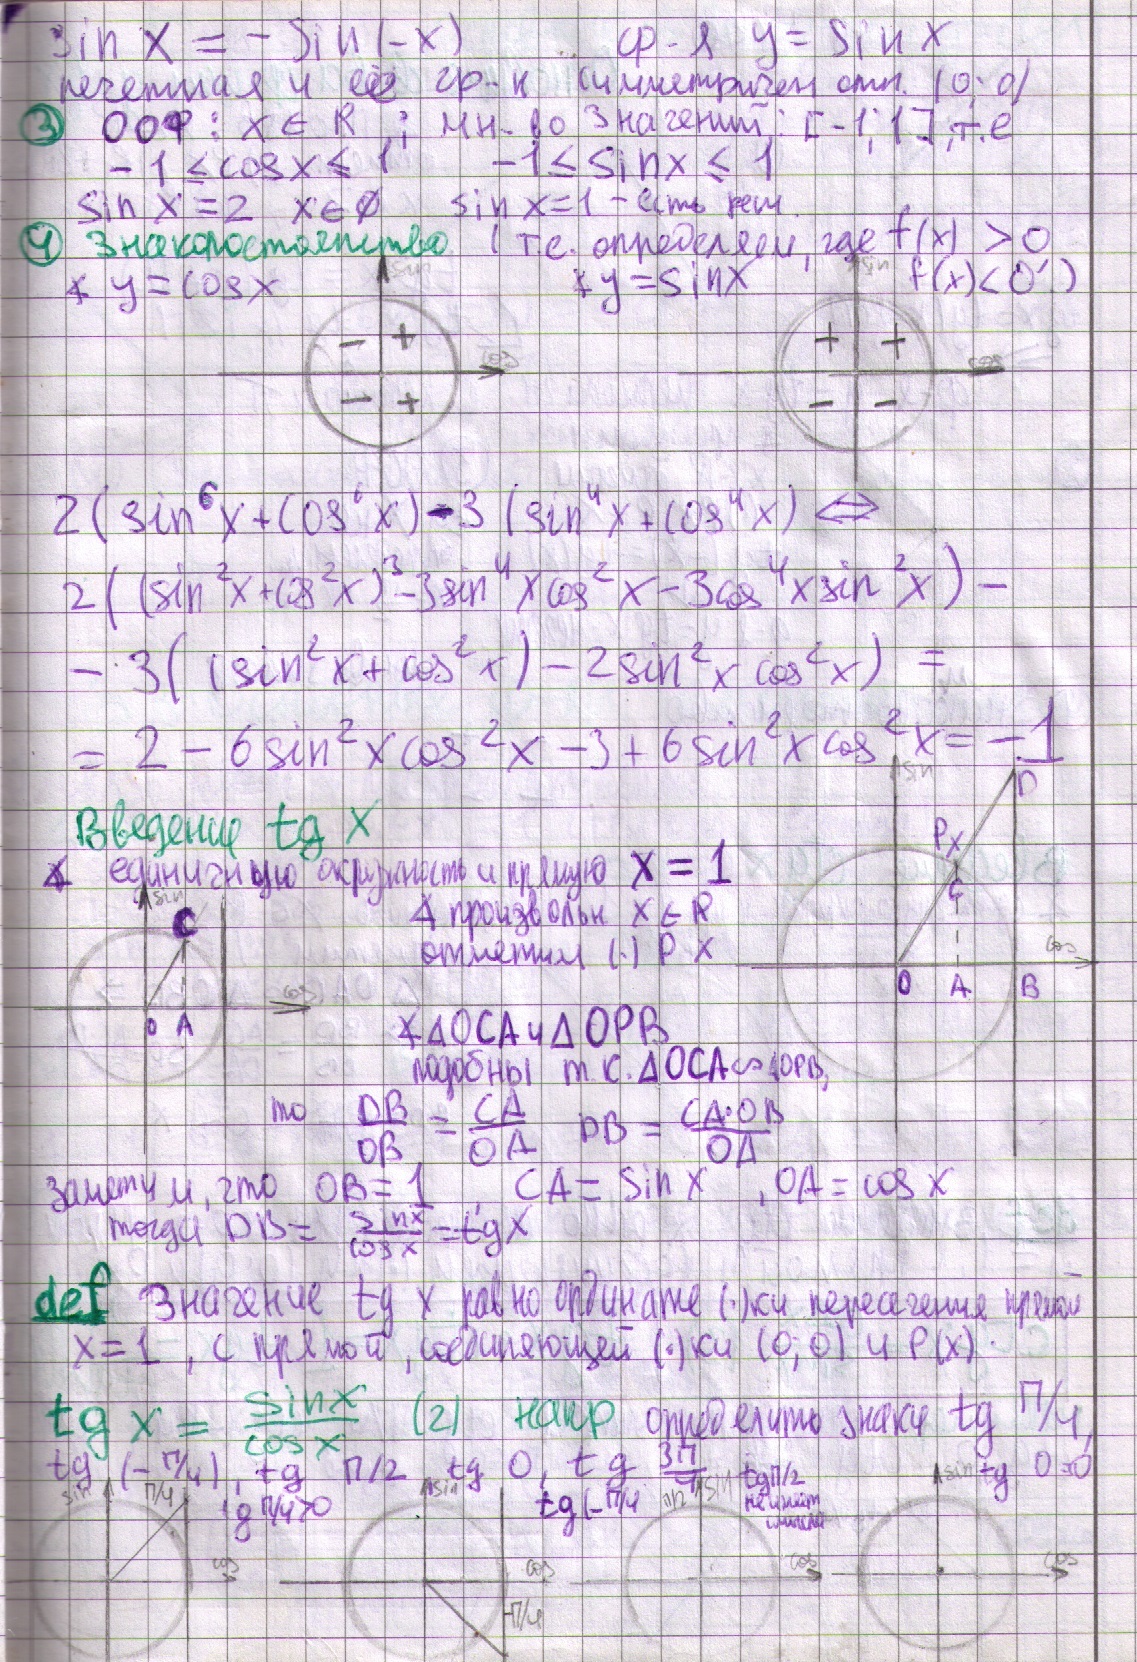 sin x = - sin(-x) ф-я y = sin x
нечетная и её гр-к симметричен отн. (0; 0)
③ ООФ: x ∈ R ; мн-во значений: [-1; 1], т.е
-1 ≤ cos x ≤ 1 -1 ≤ sin x ≤ 1
sin x = 2 x ∈ ∅ sin x = 1 - есть реш.
④ Знакопостоянство. (т.е. определяем, где f(x) > 0
∡ y = cos x ∡ y = sin x f(x) < 0)
sin sin
- + + +
cos cos
- + - -
2(sin⁶x + cos⁶x) - 3(sin⁴x + cos⁴x) ⇔
2((sin²x + cos²x)³ - 3sin⁴x cos²x - 3cos⁴x sin²x) -
- 3((sin²x + cos²x) - 2sin²x cos²x) =
= 2 - 6sin²x cos²x - 3 + 6sin²x cos²x = -1
sin D
Введение tg x
Px
∡ единичную окружность и прямую x = 1
C
sin C
∡ произвольн x ∈ R
отметим (·) P x
cos
O A B
cos
O A
∡ ΔOCA и ΔOPB
подобны т.к. ΔOCA ∽ ΔOPB,
то DB/OB = CA/OA DB = CA·OB/OA
заметим, что OB = 1, CA = sin x, OA = cos x
тогда DB = sin x/cos x = tg x
def Значение tg x равно ординате (·)ки пересечения прямой
x = 1, с прямой, соединяющей (·)ки (0; 0) и P(x).
tg x = sin x/cos x (2) напр определить знаки tg П/4,
tg (-П/4), tg П/2 tg 0, tg 3П/4
sin П/4 tg П/4 > 0 sin tg(-П/4 П/2 sin tg П/2 не имеет смысла sin tg 0 = 0
cos cos cos cos
-П/4